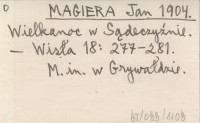 o MAGIERA Jan 1904.
Wielkanoc w Sądeczyźnie.
– Wisła 18: 277–281.
M. in. w Grywałdzie.